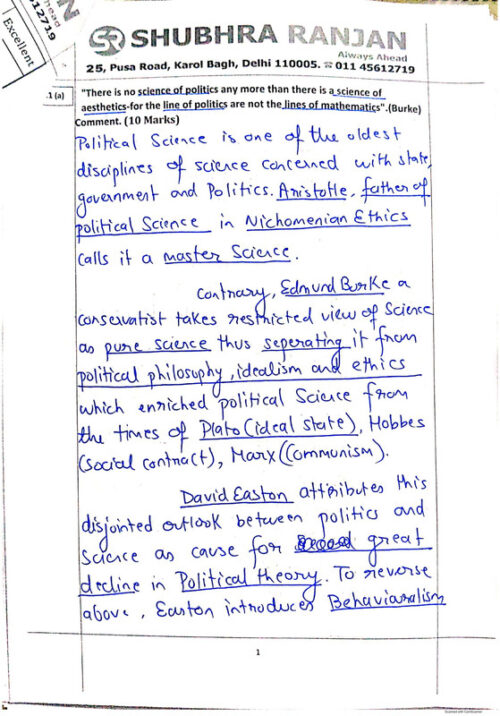 head
12719
Excellent
SHUBHRA RANJAN
Always Ahead
25, Pusa Road, Karol Bagh, Delhi 110005. ☎ 011 45612719
1 (a)
"There is no science of politics any more than there is a science of
aesthetics-for the line of politics are not the lines of mathematics".(Burke)
Comment. (10 Marks)
Political Science is one of the oldest
disciplines of science concerned with state,
government and Politics. Aristotle, father of
political Science in Nichomenian Ethics
calls it a master Science.
Contrary, Edmund Burke a
conservatist takes restricted view of Science
as pure science thus seperating it from
political philosophy, idealism and ethics
which enriched political Science from
the times of Plato (ideal state), Hobbes
(social contract), Marx (Communism).
David Easton attributes this
disjointed outlook between politics and
Science as cause for great
decline in Political theory. To reverse
above, Easton introduces Behaviaralism
1